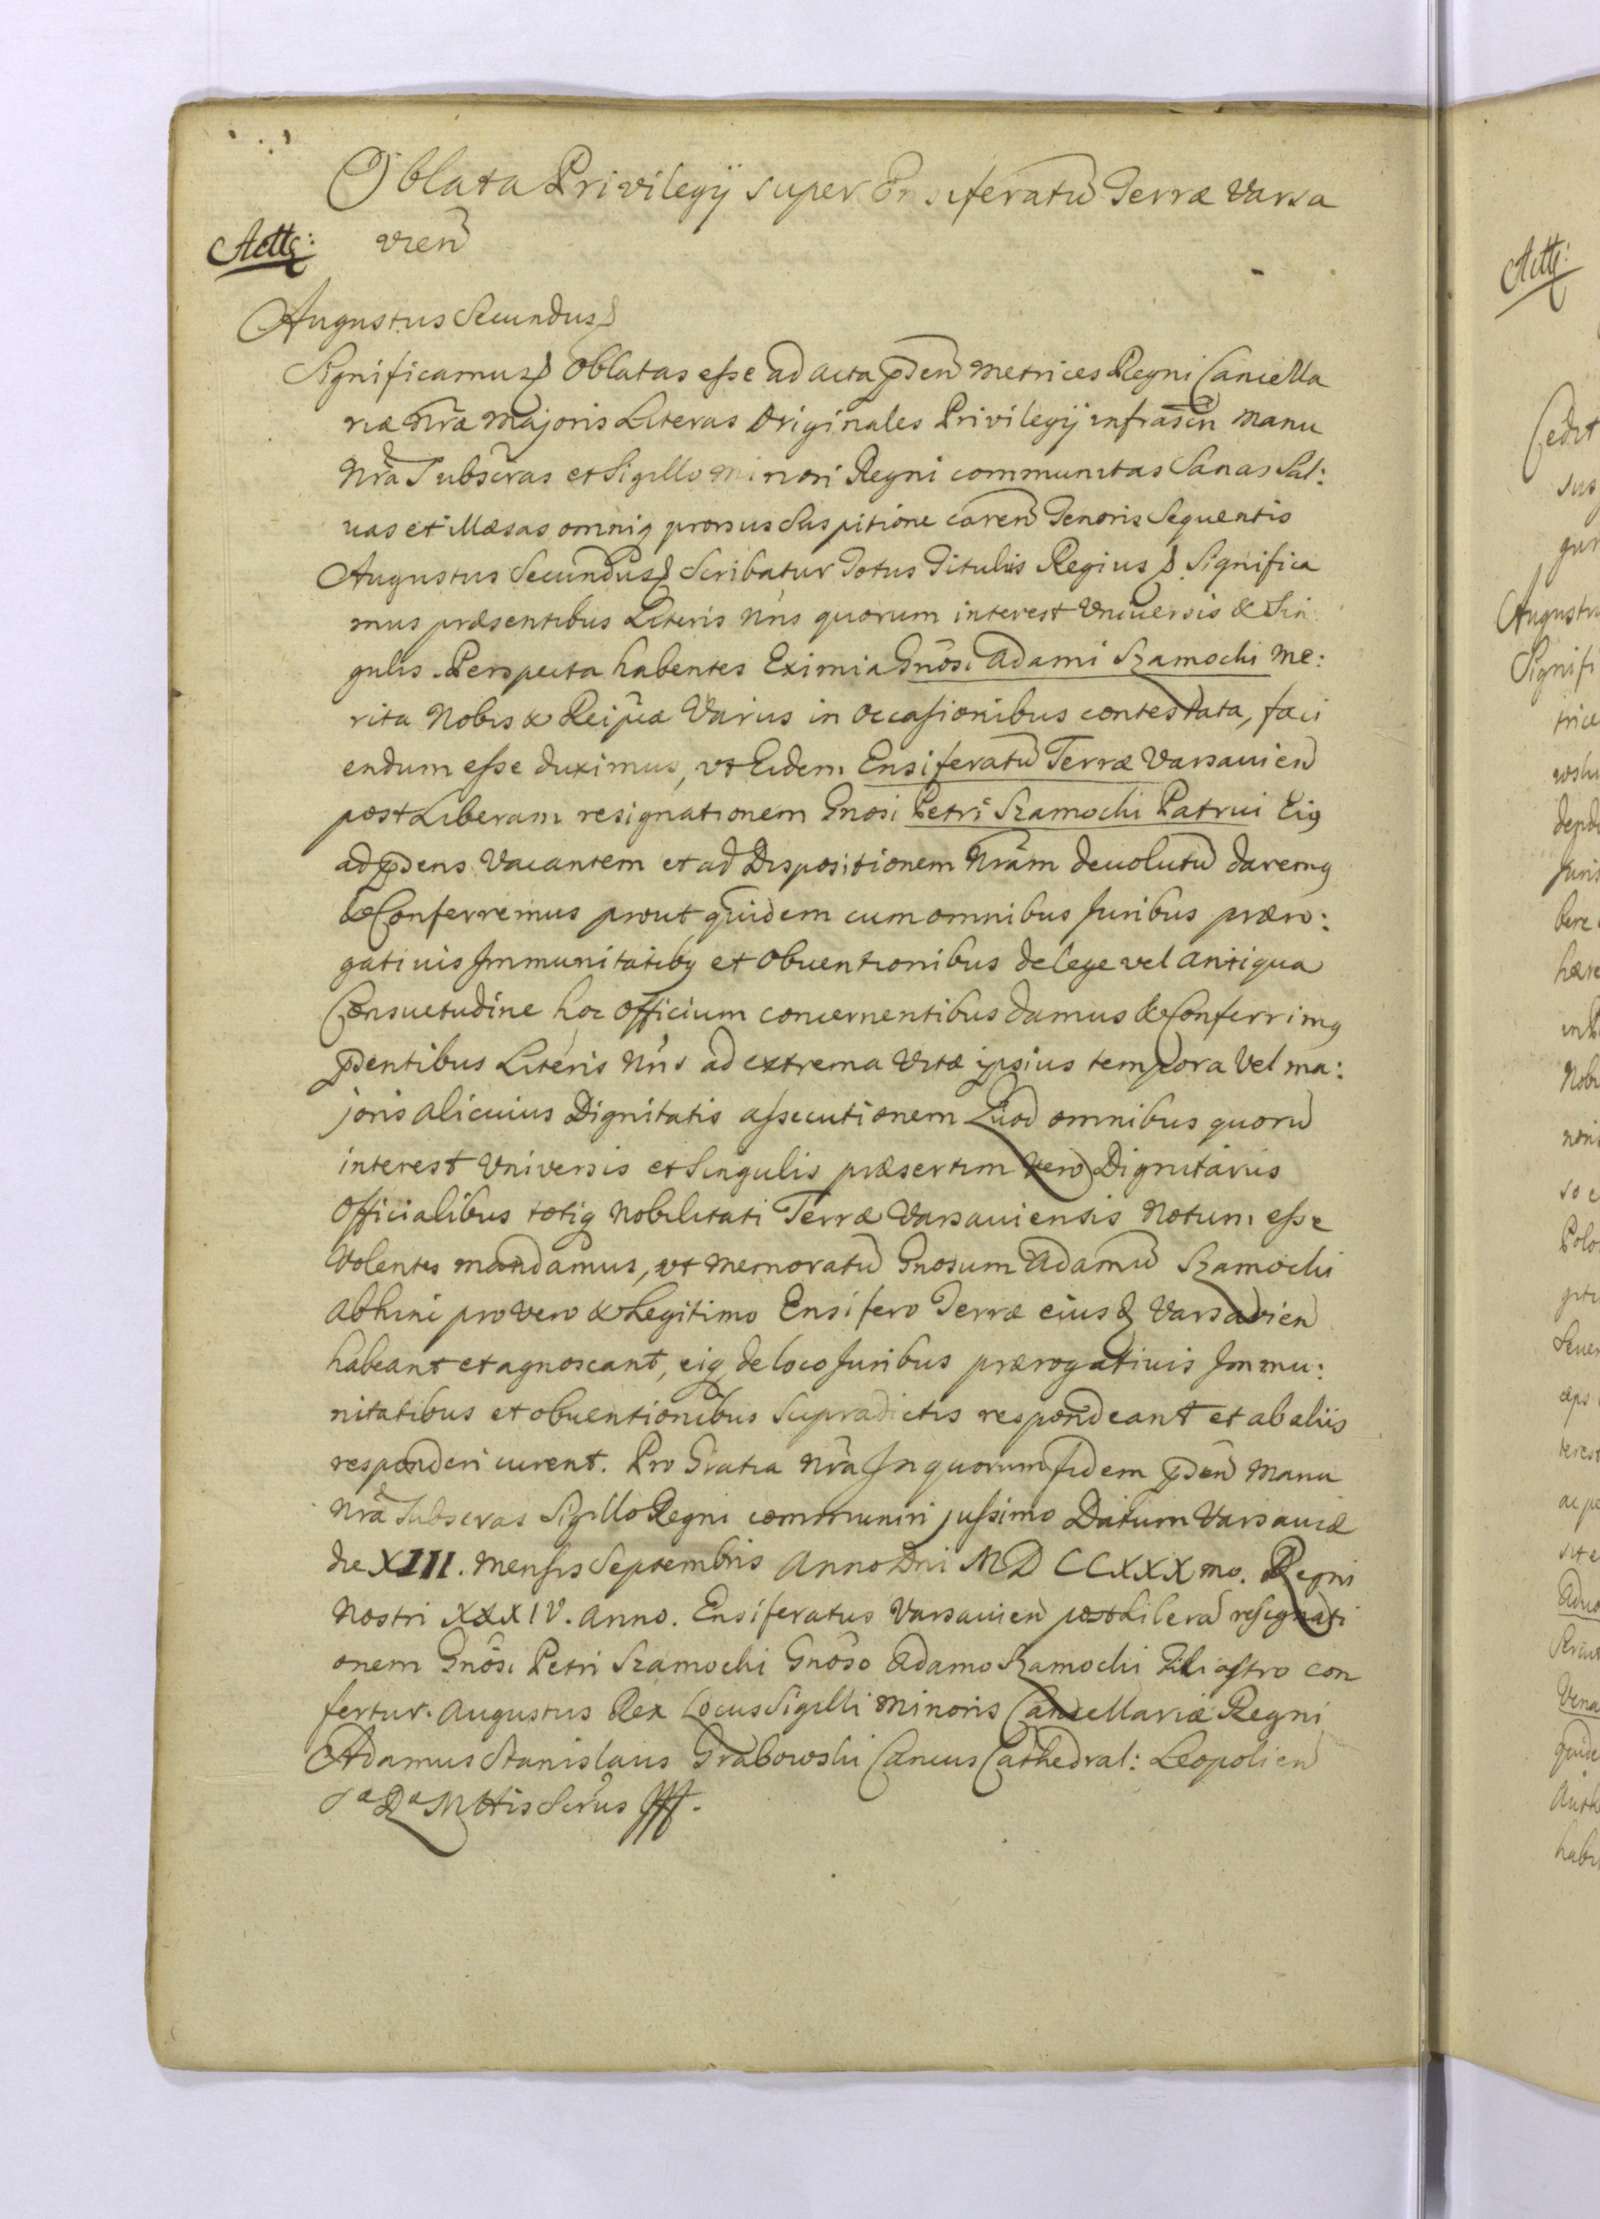 Oblata Privilegij super Ensiferatu Terræ Varsa
vien
Actt:
Augustus Secundus
Significamus Oblatas esse ad acta pñden Metrices Regni Cancella
riæ Nræ Majoris Literas Originales Privilegij infrascri Manu
Nra Subscras et Sigillo minori Regni communitas Sanas Sal:
vas et Illæsas omniq prorsus Suspitione caren Tenoris Sequentis
Augustus Secundus Scribatur Totus Titulus Regius Significa
mus præsentibus Literis Nris quorum interest Universis & Sin
gulis. Perspecta habentes Eximia Gnosi Adami Szamocki Me:
rita Nobis & Reipcæ Varijs in occasionibus contestata, faci
endum esse duximus, ut Eidem Ensiferatu Terræ Varsavien
post Liberam resignationem Gnosi Petri Szamocki Patrui Eiq
ad pñdens Vacantem et ad Dispositionem Nram devolutu daremq
& Conferremus prout quidem cum omnibus Juribus prærо:
gativis Immunitatibq et Obventionibus de lege vel Antiqua
Consuetudine hoc Officium concernentibus damus & Conferrimq
pñdentibus Literis Nris ad extrema Vitæ ipsius tempora Vel ma:
joris alicuius Dignitatis assecutionem Quod omnibus quoru
interest Universis et Singulis præsertim vero Dignitarijs
Officialibus totiq Nobilitati Terræ Varsaviensis Notum esse
Volentes mandamus, ut memoratu Gnosum Adamu Szamocki
abhinc pro Vero & Legitimo Ensifero Terræ eiusq Varsavien
habeant et agnoscant, eiq de loco Juribus prærogativis Immu:
nitatibus et obventionibus Supradictis respondeant et ab aliis
responderi curent. Pro Gratia Nra In quorum fidem pñden Manu
Nra Subscras Sigillo Regni communiri jussimo Datum Varsaviæ
die XIII. Mensis Septembris Anno Dni MD CCXXX mo. Regni
Nostri XXXIV. Anno. Ensiferatus Varsavien post Libera resignati
onem Gnosi Petri Szamocki Gnoso Adamo Szamocki Filiastro con
fertur. Augustus Rex Locus Sigilli Minoris Cancellariæ Regni
Adamus Stanislaus Grabowski Cancus Cathedral: Leopolien
Sæ Ræ Mttis Scrius